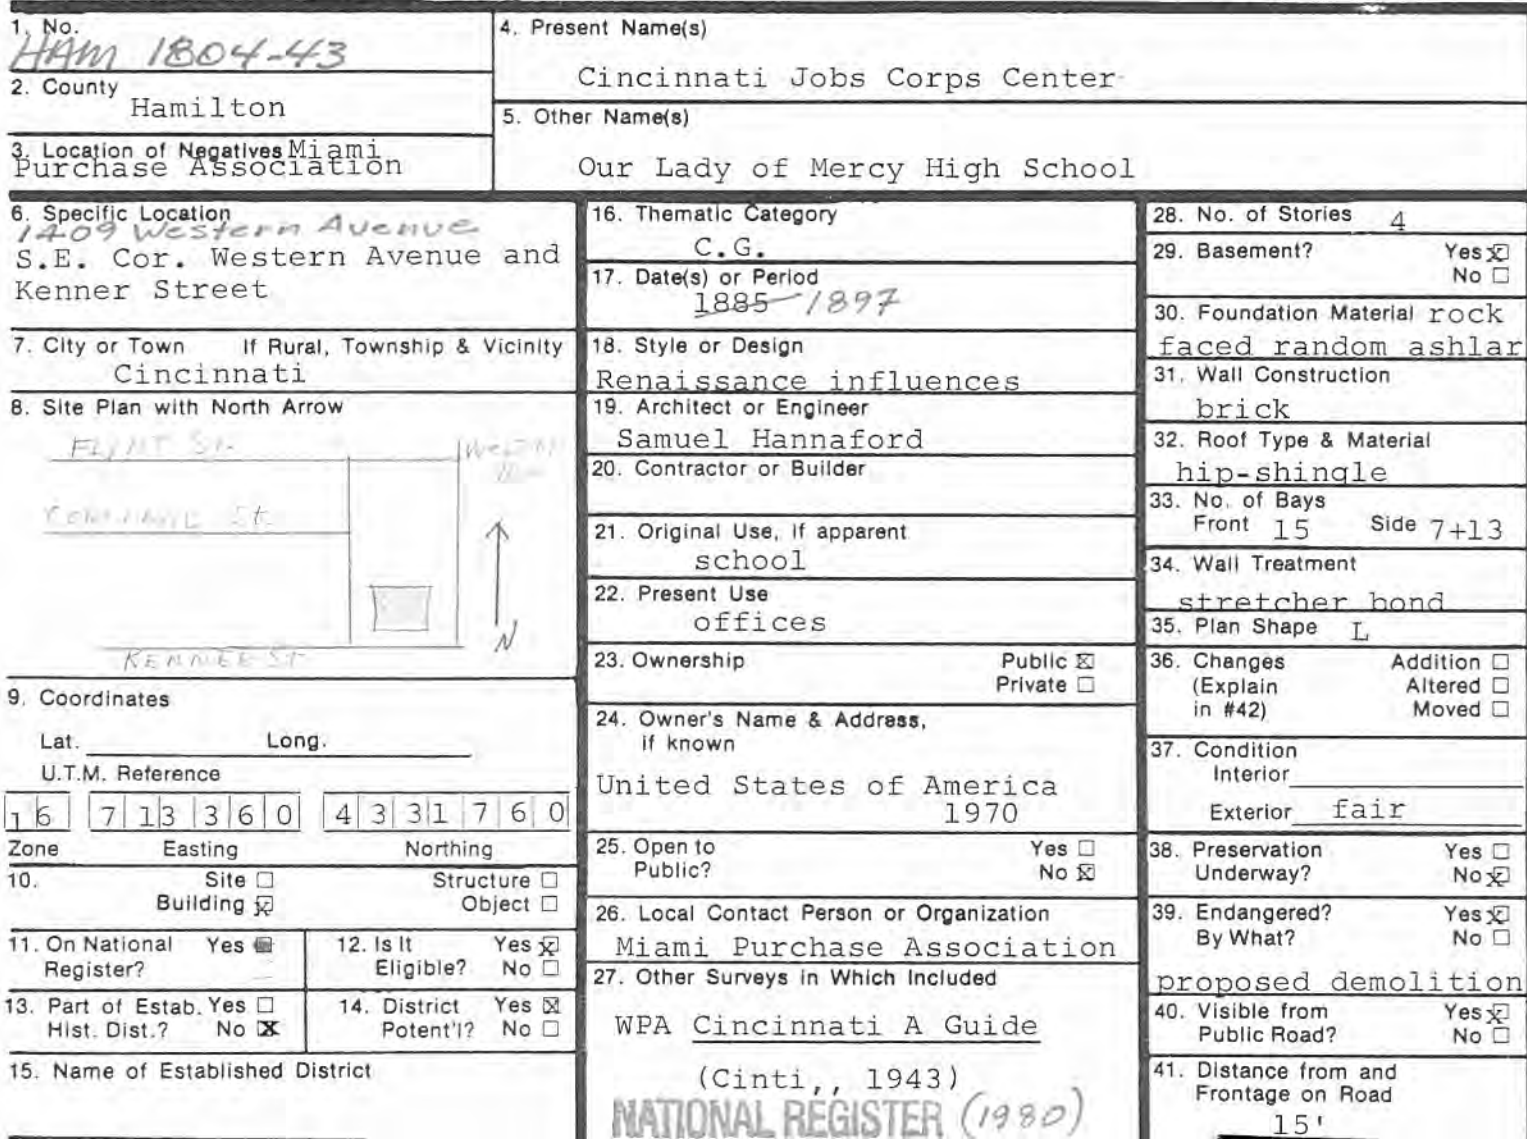 1. No.
HAM 1804-43
2. County
Hamilton
3. Location of Negatives Miami
Purchase Association
4. Present Name(s)
Cincinnati Jobs Corps Center
5. Other Name(s)
Our Lady of Mercy High School
6. Specific Location
1409 Western Avenue
S.E. Cor. Western Avenue and
Kenner Street
7. City or Town If Rural, Township & Vicinity
Cincinnati
8. Site Plan with North Arrow
FLINT St.
St.
KENNER ST
N
9. Coordinates
Lat. Long.
U.T.M. Reference
16 713360 4331760
Zone Easting Northing
10. Site ☐ Structure ☐
Building ☒ Object ☐
11. On National Yes ☒
Register?
12. Is It Yes ☒
Eligible? No ☐
13. Part of Estab. Yes ☐
Hist. Dist.? No ☒
14. District Yes ☒
Potent'l? No ☐
15. Name of Established District
16. Thematic Category
C.G.
17. Date(s) or Period
1885 1897
18. Style or Design
Renaissance influences
19. Architect or Engineer
Samuel Hannaford
20. Contractor or Builder
21. Original Use, if apparent
school
22. Present Use
offices
23. Ownership Public ☒
Private ☐
24. Owner's Name & Address,
if known
United States of America
1970
25. Open to Yes ☐
Public? No ☒
26. Local Contact Person or Organization
Miami Purchase Association
27. Other Surveys in Which Included
WPA Cincinnati A Guide
(Cinti,, 1943)
NATIONAL REGISTER (1980)
28. No. of Stories 4
29. Basement? Yes ☒
No ☐
30. Foundation Material rock
faced random ashlar
31. Wall Construction
brick
32. Roof Type & Material
hip-shingle
33. No. of Bays
Front 15 Side 7+13
34. Wall Treatment
stretcher bond
35. Plan Shape L
36. Changes Addition ☐
(Explain Altered ☐
in #42) Moved ☐
37. Condition
Interior
Exterior fair
38. Preservation Yes ☐
Underway? No ☒
39. Endangered? Yes ☒
By What? No ☐
proposed demolition
40. Visible from Yes ☒
Public Road? No ☐
41. Distance from and
Frontage on Road
15'